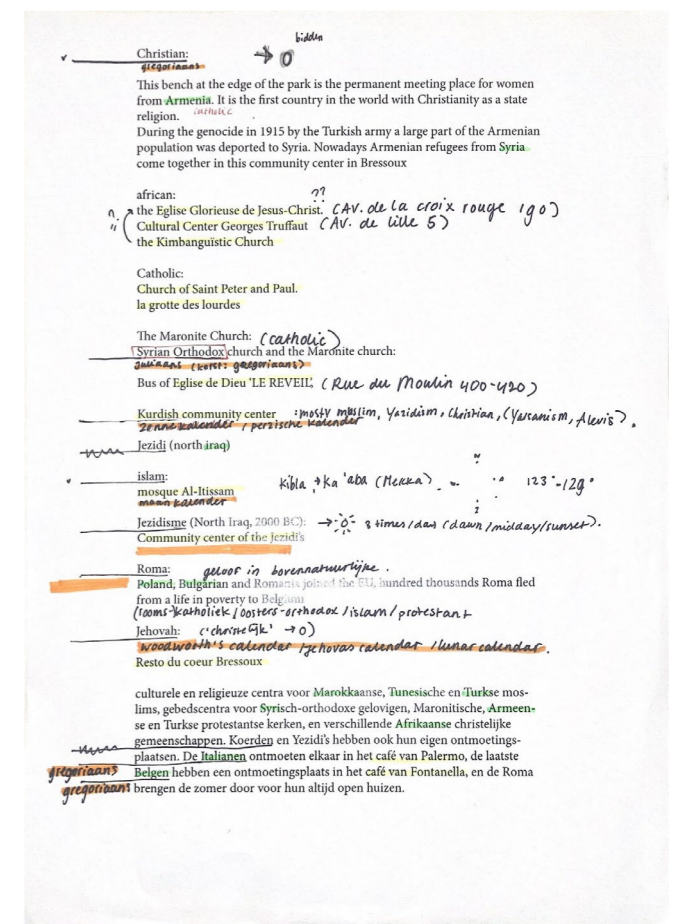 bidden
Christian: → O
gregoriaans
This bench at the edge of the park is the permanent meeting place for women
from Armenia. It is the first country in the world with Christianity as a state
religion. catholic
During the genocide in 1915 by the Turkish army a large part of the Armenian
population was deported to Syria. Nowadays Armenian refugees from Syria
come together in this community center in Bressoux
african: ??
the Eglise Glorieuse de Jesus-Christ. (AV. de la croix rouge 190)
Cultural Center Georges Truffaut (AV. de Lille 5)
the Kimbanguïstic Church
Catholic:
Church of Saint Peter and Paul.
la grotte des lourdes
The Maronite Church: (catholic)
Syrian Orthodox church and the Maronite church:
Juliaans (kerst: gregoriaans)
Bus of Eglise de Dieu 'LE REVEIL', (Rue du Moulin 400-420)
Kurdish community center :mosty muslim, Yazidism, Christian, (Yarsanism, Alevis).
zonnekalender / perzische kalender
Jezidi (north iraq)
islam: Kibla → Ka'aba (Mekka) 123°-129°
mosque Al-Itissam
maan kalender
Jezidisme (North Iraq, 2000 BC): → 3 times/day (dawn/midday/sunset).
Community center of the Jezidi's
Roma: geloof in bovennatuurlijke.
Poland, Bulgarian and Romania joined the EU, hundred thousands Roma fled
from a life in poverty to Belgium
(rooms-katholiek / oosters-orthodox / islam / protestant
Jehovah: ('christelijk' → O)
woodworth's calendar / jehovas calendar / lunar calendar.
Resto du coeur Bressoux
culturele en religieuze centra voor Marokkaanse, Tunesische en Turkse mos-
lims, gebedscentra voor Syrisch-orthodoxe gelovigen, Maronitische, Armeen-
se en Turkse protestantse kerken, en verschillende Afrikaanse christelijke
gemeenschappen. Koerden en Yezidi's hebben ook hun eigen ontmoetings-
plaatsen. De Italianen ontmoeten elkaar in het café van Palermo, de laatste
gregoriaans Belgen hebben een ontmoetingsplaats in het café van Fontanella, en de Roma
gregoriaans brengen de zomer door voor hun altijd open huizen.